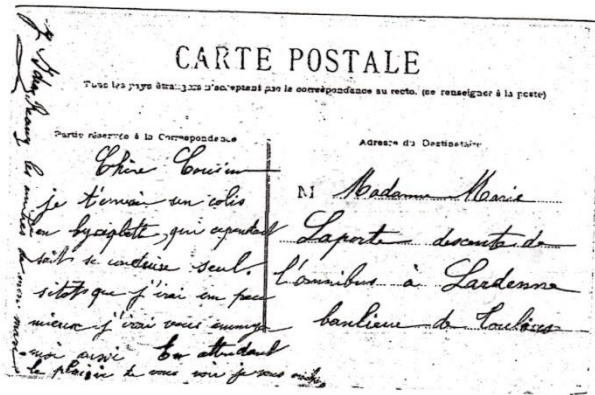 CARTE POSTALE
Tous les pays étrangers n'acceptent pas la correspondance au recto. (se renseigner à la poste)
Partie réservée à la Correspondance
Chère Cousine
je t'envoie un colis
en bycaglette, qui cependant
sait se conduire seul.
sitôt que j'irai un peu
mieux j'irai vous
moi aussi En attendant
le plaisir de vous voir je vous
Adresse du Destinataire
M Madame Marie
Laporte descente de
l'omnibus à Lardenne
banlieue de Toulouse